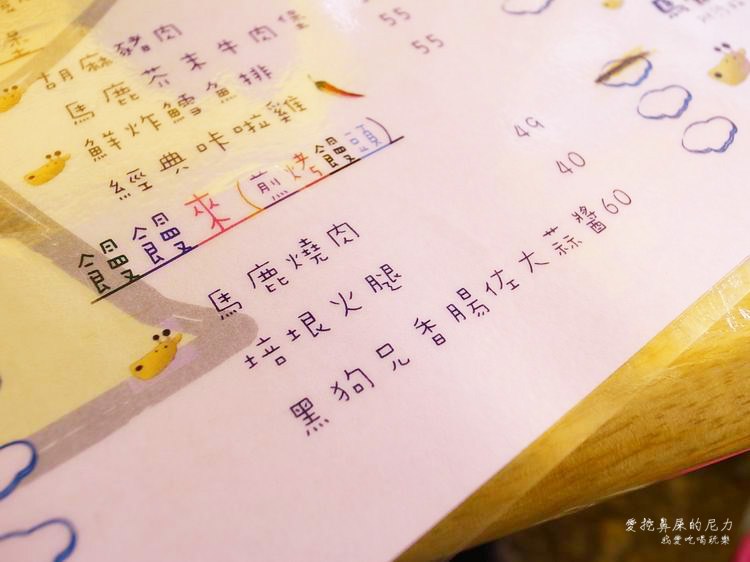 胡麻豬肉 55
馬鹿芥末牛肉堡 55
鮮炸鱈魚排
經典咔啦雞
饅饅來(煎烤饅頭)
馬鹿燒肉 49
培垠火腿 40
黑狗兄香腸佐大蒜醬60
愛挖鼻屎的尼力
我愛吃喝玩樂